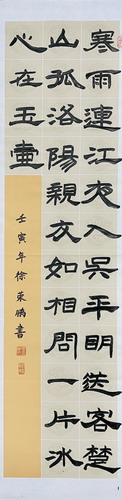 寒雨連江夜入吳平明送客楚
山孤洛陽親友如相問一片冰
心在玉壺
壬寅年徐榮鵬書